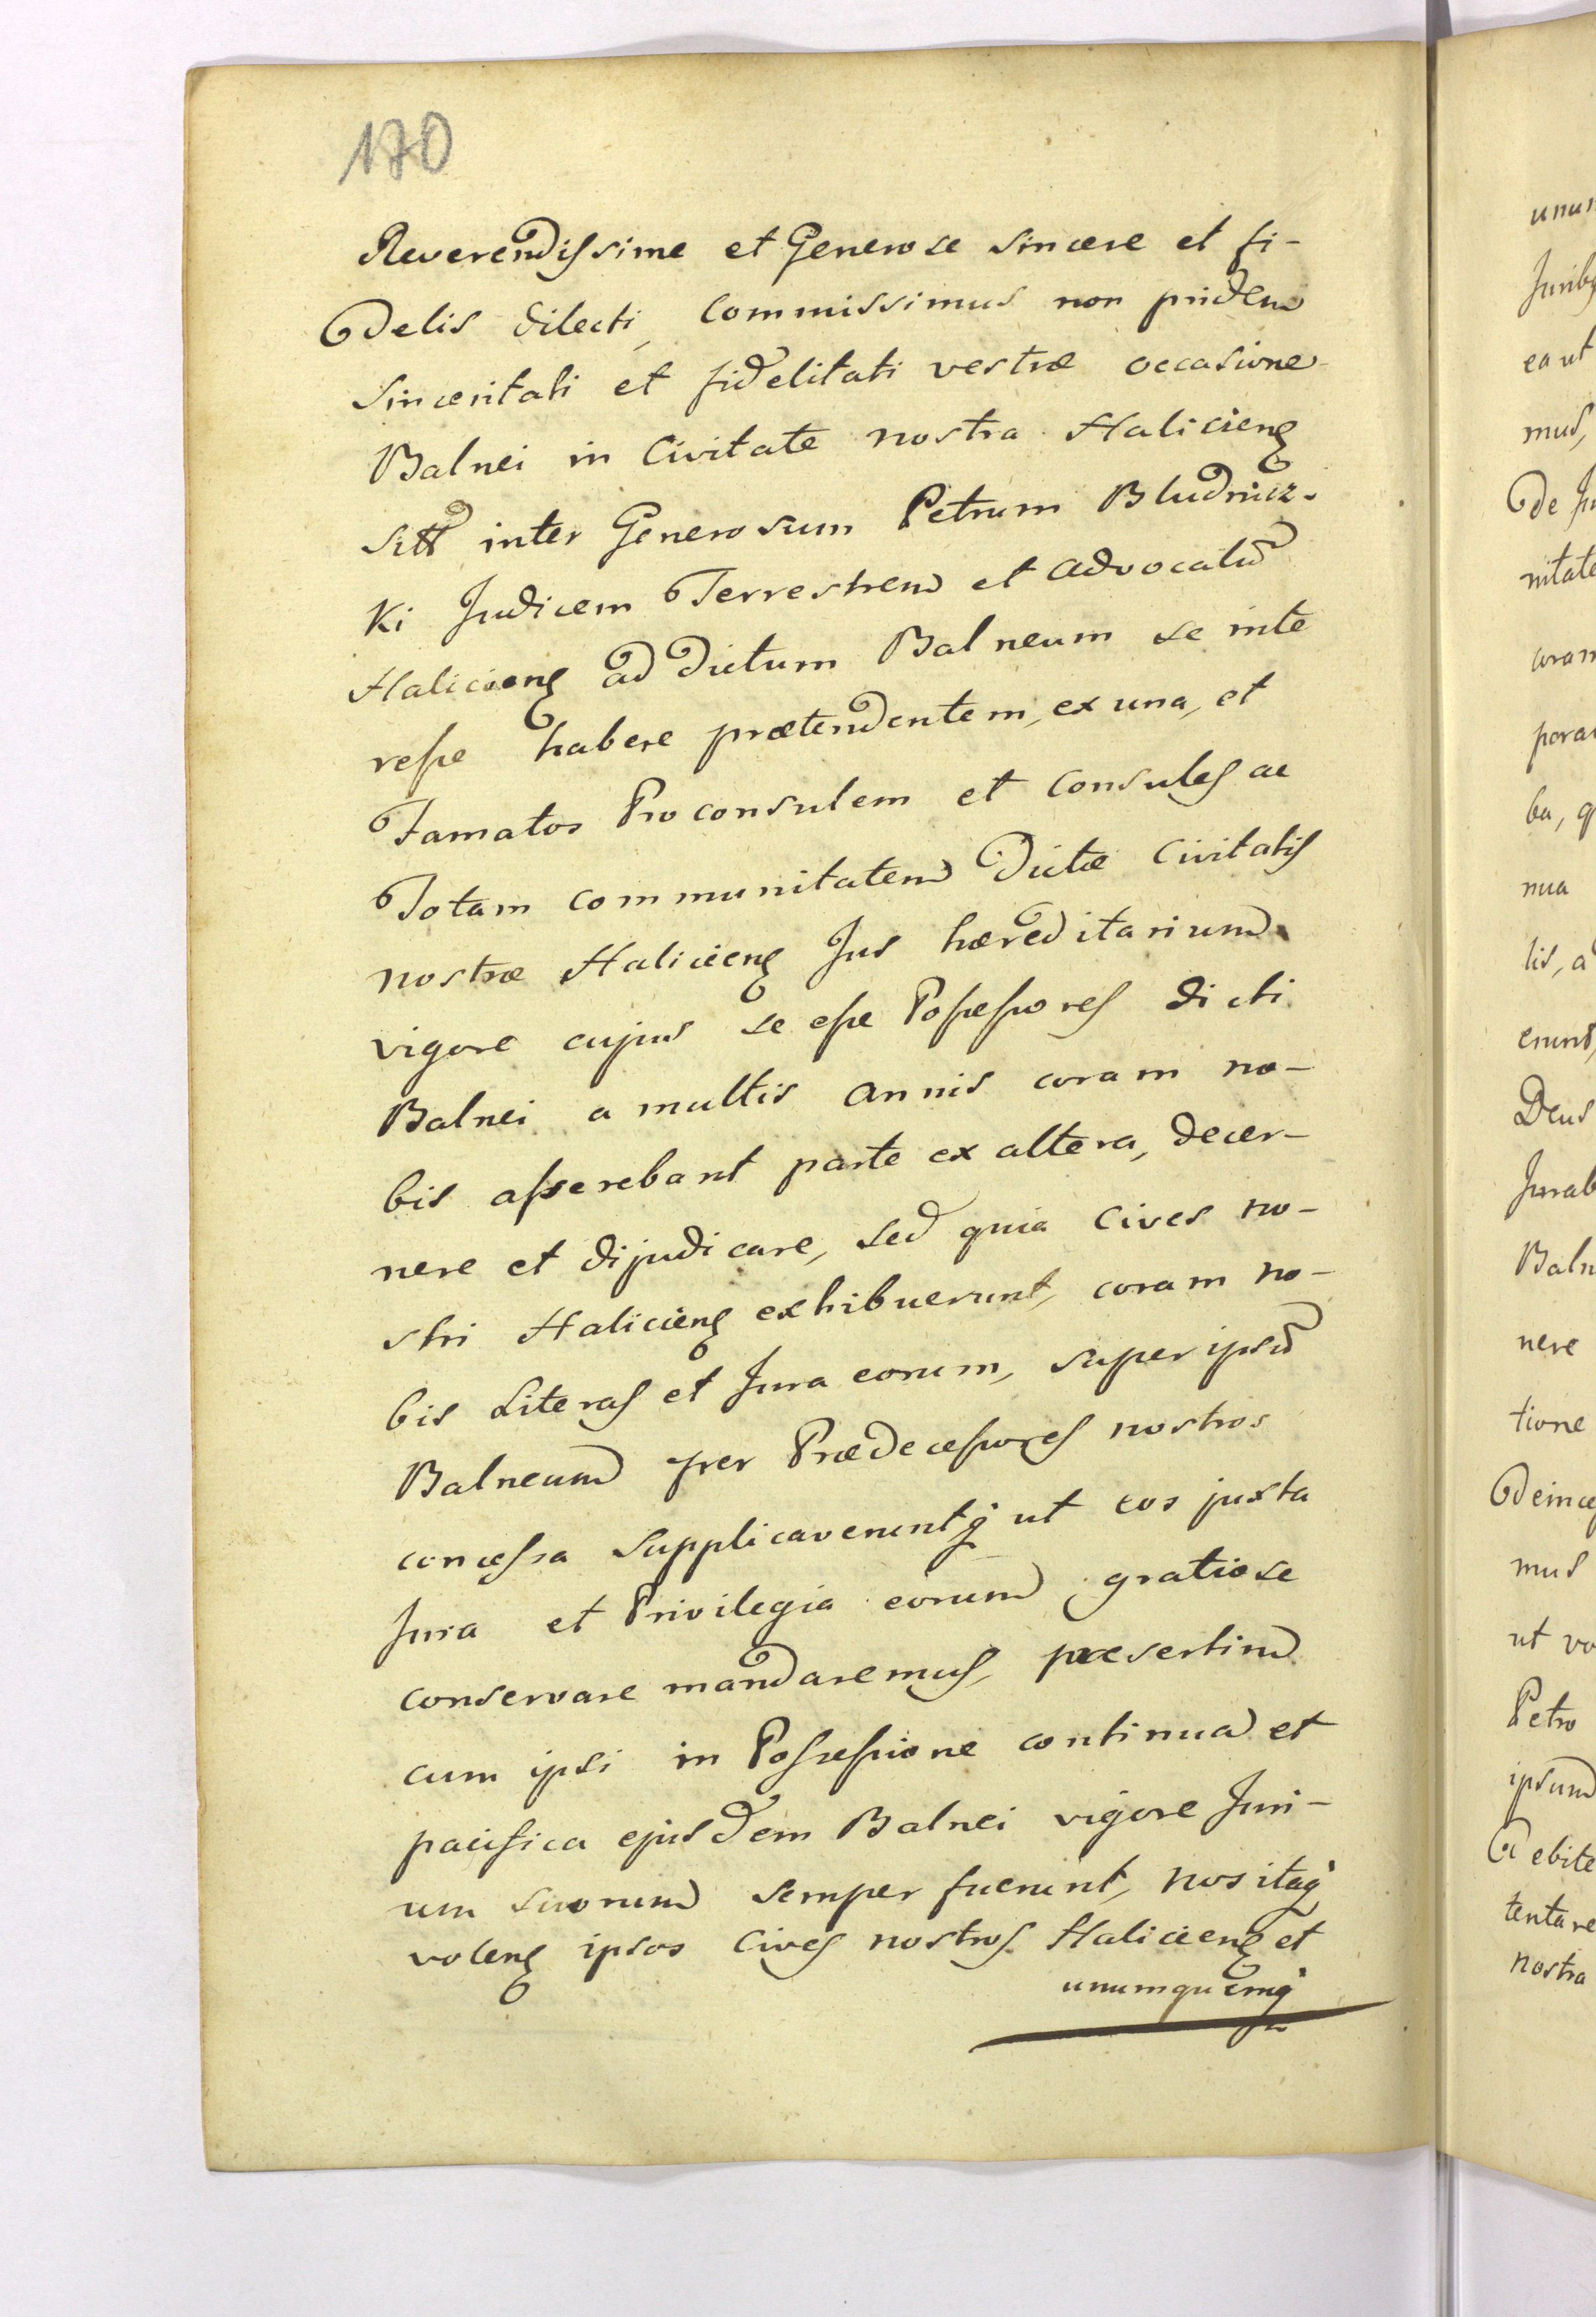 170
Reverendissime et Generose sincere et fi-
delis dilecti, Commissimus non pridem
sinceritati et fidelitati vestræ occasione
Balnei in Civitate nostra Halicieng
inter Generosum Petrum Bludnicz-
ki Judicem Terrestrem et Advocatū
Halicieng ad dictum Balneum se inte
resse habere prætendentem, ex una, et
Famatos Proconsulem et Consules ac
Totam communitatem dictæ Civitatis
nostræ Halicieng Jus hæreditarium
vigore cujus se esse Possessores dicti
Balnei a multis annis coram no-
bis asserebant parte ex altera, decer-
nere et dijudicare, sed quia Cives no-
stri Halicieng exhibuerunt, coram no-
bis Literas et Jura eorum, super ipsū
Balneum per Prædecessores nostros
concessa supplicaveruntq ut eos juxta
Jura et Privilegia eorum gratiose
conservare mandaremus, præsertim
cum ipsi in Possessione continua et
pacifica ejusdem Balnei vigore Juri-
um suorum semper fuerunt, nos itaq
voleng ipsos Cives nostros Halicieng et
unumquemq
unu
Jurib
ea ut
mus,
de Ju
nitate
coram
pora
ba, q
nua
lis, a
erunt,
Deus
Jurab
Baln
nere
tione
deince
mus
ut vo
Petro
ipsum
debite
tentare
nostra